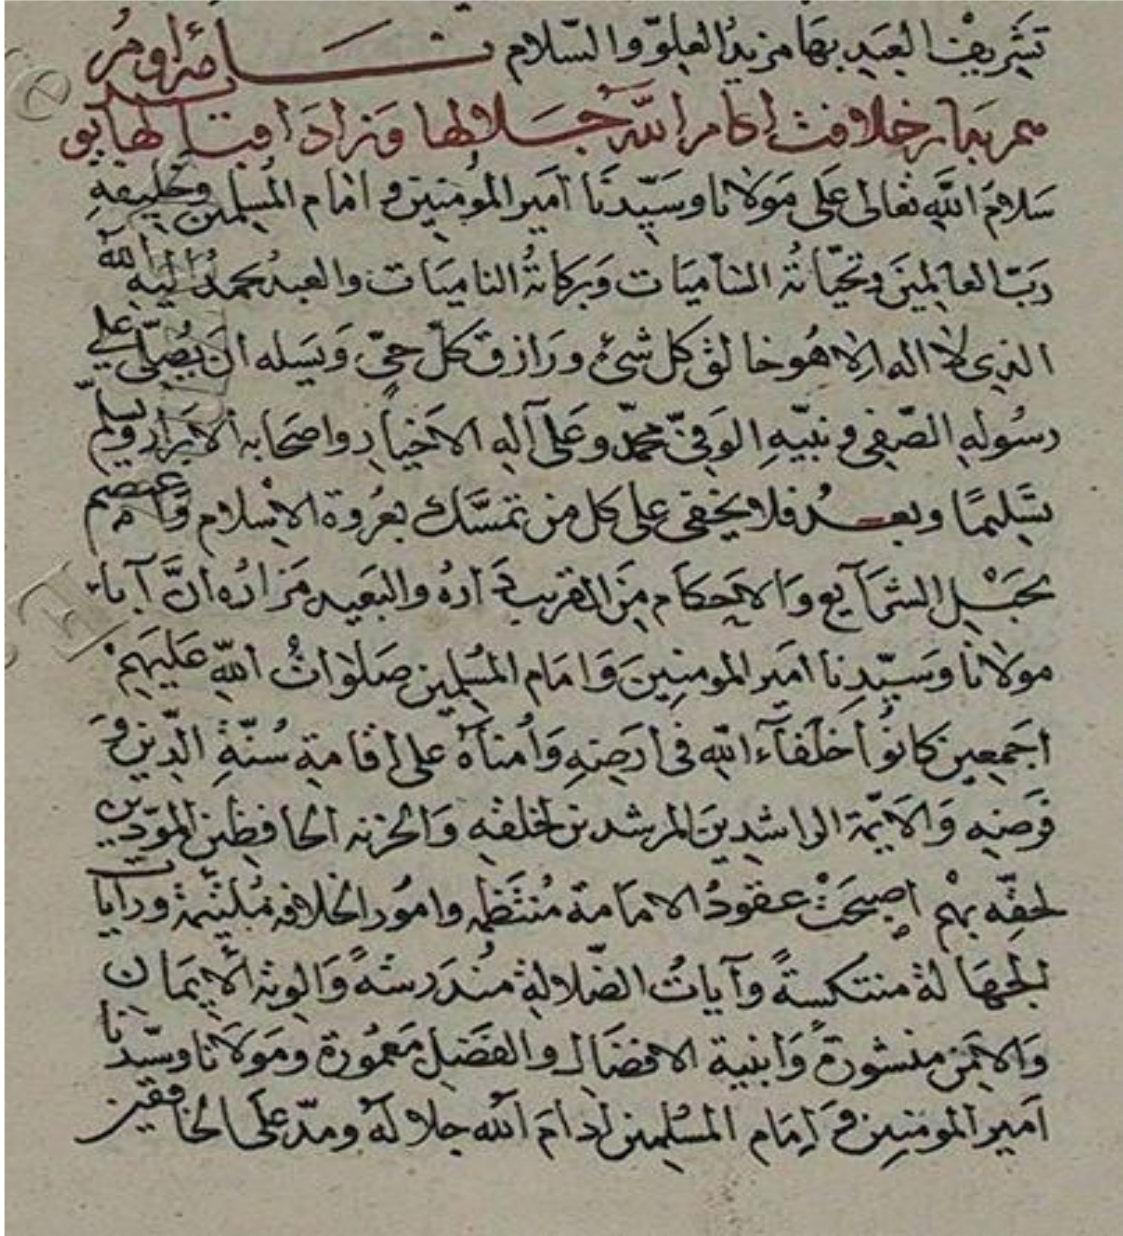 تشريف العبد بها مزيد العلو والسلام نامه اومر
خلافت ادام الله جلالها وزاد اقبالها
سلام الله تعالى على مولانا وسيدنا امير المومنين و امام المسلمين وخليفه
رب العالمين وتحياته الناميات وبركاته الناميات والعبد يحمد اليه الله
الذي لا اله الا هو خالق كل شئ ورازق كل حي ويسله ان يصلى على
رسوله الصفي و نبيه الوفي محمد وعلى آله الاخيار واصحابه الابرار ويسلم
تسليما وبعد فلا يخفى على كل من تمسك بعروة الاسلام واعتصم
بحبل الشرآيع والاحكام من القريب داره والبعيد مزاره ان آباء
مولانا وسيدنا امير المومنين وامام المسلمين صلوات الله عليهم
اجمعين كانوا خلفآء الله فى ارضه وامنآه على اقامة سنة الدين و
فرضه والايمة الراشدين المرشدين لخلقه والخزنه الحافظين المودين
لحقه بهم اصبحت عقود الامامة منتظمه وامور الخلافه ملتئمة ورايات
الجهالة منتكسة وآيات الضلالة مندرسة والوية الايمان
والامن منشورة وابنية الافضال والفضل معمورة ومولانا وسيدنا
امير المومنين و امام المسلمين ادام الله جلاله ومد على الخافقين